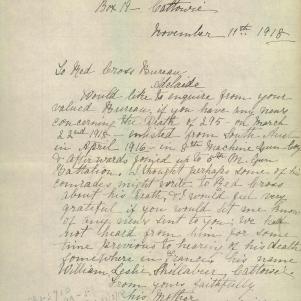 Box 19 - Caltowie
November 11th 1918
To Red Cross Bureau
Adelaide
Would like to enquire from your
valued Bureau, if you have any news
concerning the death of 295 - on March
22nd 1918 - enlisted from South Aust
in April 1916 - in 5th Machine Gun Coy
& afterwards joined up to 5th M. Gun
Battalion. I thought perhaps some of his
comrades might write to Red Cross
about his death, & I would feel very
grateful if you would let me know
of any news sent to you, for had
not heard from him for some
time previous to hearing of his death,
somewhere in France, his name
William Leslie Shillabeer, Caltowie
From yours faithfully
his Mother